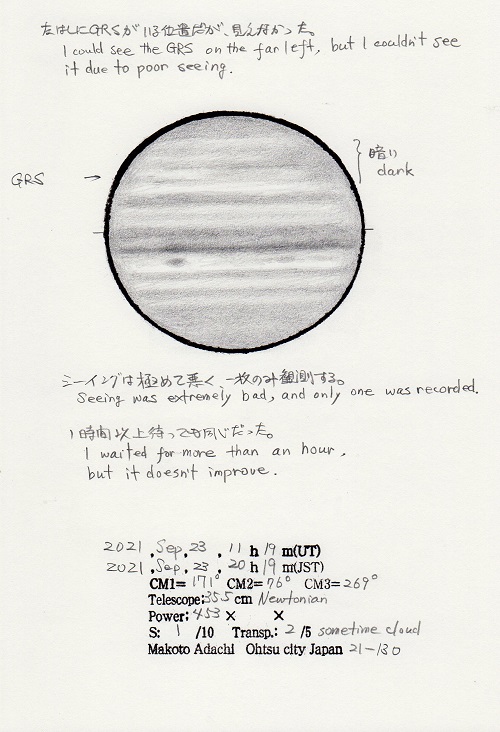 左はしにGRSがいる位置だが、見えなかった。
I could see the GRS on the far left, but I couldn't see
it due to poor seeing.
GRS →
暗い
dark
シーイングは極めて悪く、一枚のみ観測する。
Seeing was extremely bad, and only one was recorded.
1時間以上待っても同じだった。
I waited for more than an hour,
but it doesn't improve.
2021 , Sep. 23 , 11 h 19 m(UT)
2021 , Sep. 23 , 20 h 19 m(JST)
CM1= 171° CM2= 76° CM3= 269°
Telescope: 355 cm Newtonian
Power: 453 × ×
S: 1 /10 Transp.: 2 /5 sometime cloud
Makoto Adachi Ohtsu city Japan 21-130